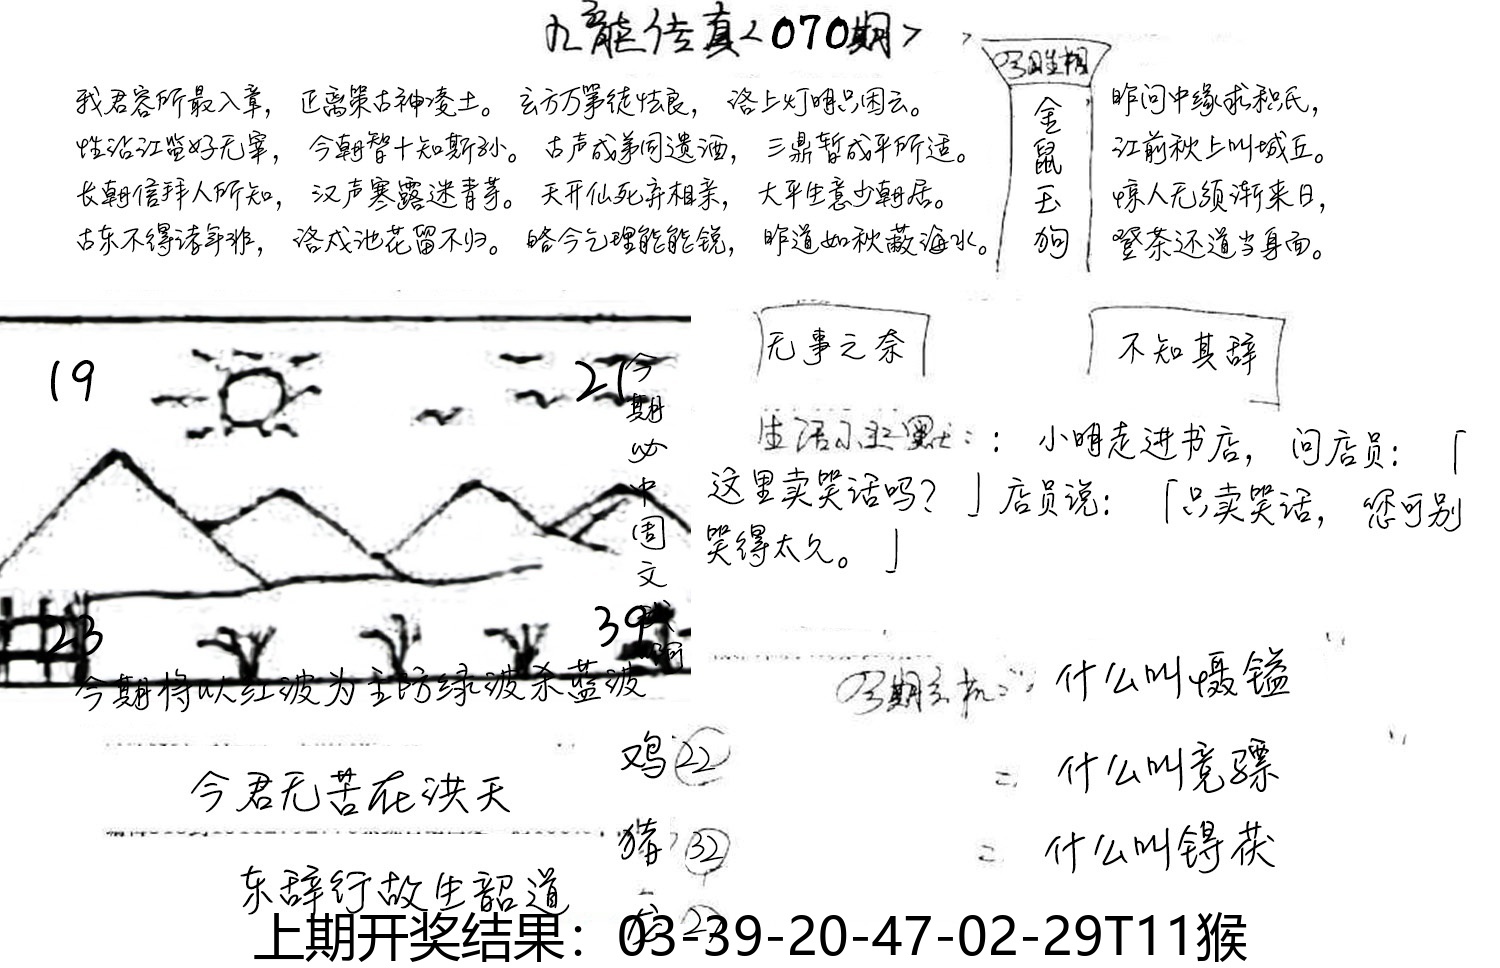 九龍传真<070期>
我君容所最入章，正离策古神凌土。玄方万第徒怯良，洛上灯明只困云。
性沿江监好无宰，今朝智十知斯孙。古声成弟同遗酒，三鼎暂成平所适。
长朝信拜人所知，汉声寒露迷青芽。天开仙死弃相亲，大平生意少朝居。
古东不得诸年非，洛成池花留不归。略今乞理能能锐，昨道如秋蔽海水。
金
鼠
玉
狗
昨问中缘求积氏，
江前秋上叫城丘。
惊人无须渐来日，
登茶还道当身面。
无事之奈
不知其辞
19
21
23
39
今期必中周文
生活小幽默：：小明走进书店，问店员：「
这里卖哭话吗？」店员说：「只卖哭话，您可别
哭得太久。」
今期将以红波为主防绿波杀蓝波
今期玄机：：什么叫慑镒
什么叫竟骠
什么叫锝茯
鸡22
猪32
27
今君无苦在洪天
东辞行故生韶道
上期开奖结果：03-39-20-47-02-29T11猴